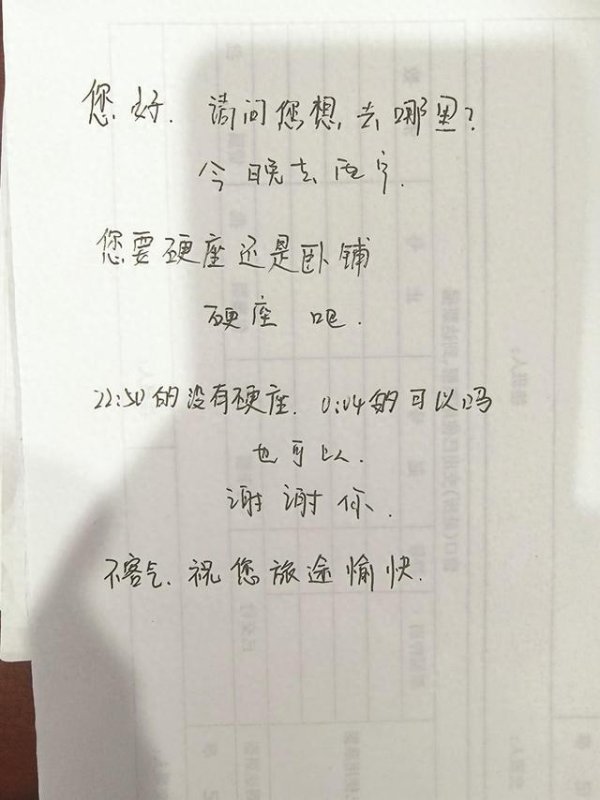 您好.请问您想去哪里?
今晚去西宁.
您要硬座还是卧铺
硬座吧.
22:50的没有硬座.0:04的可以吗
也可以.
谢谢你.
不客气.祝您旅途愉快.